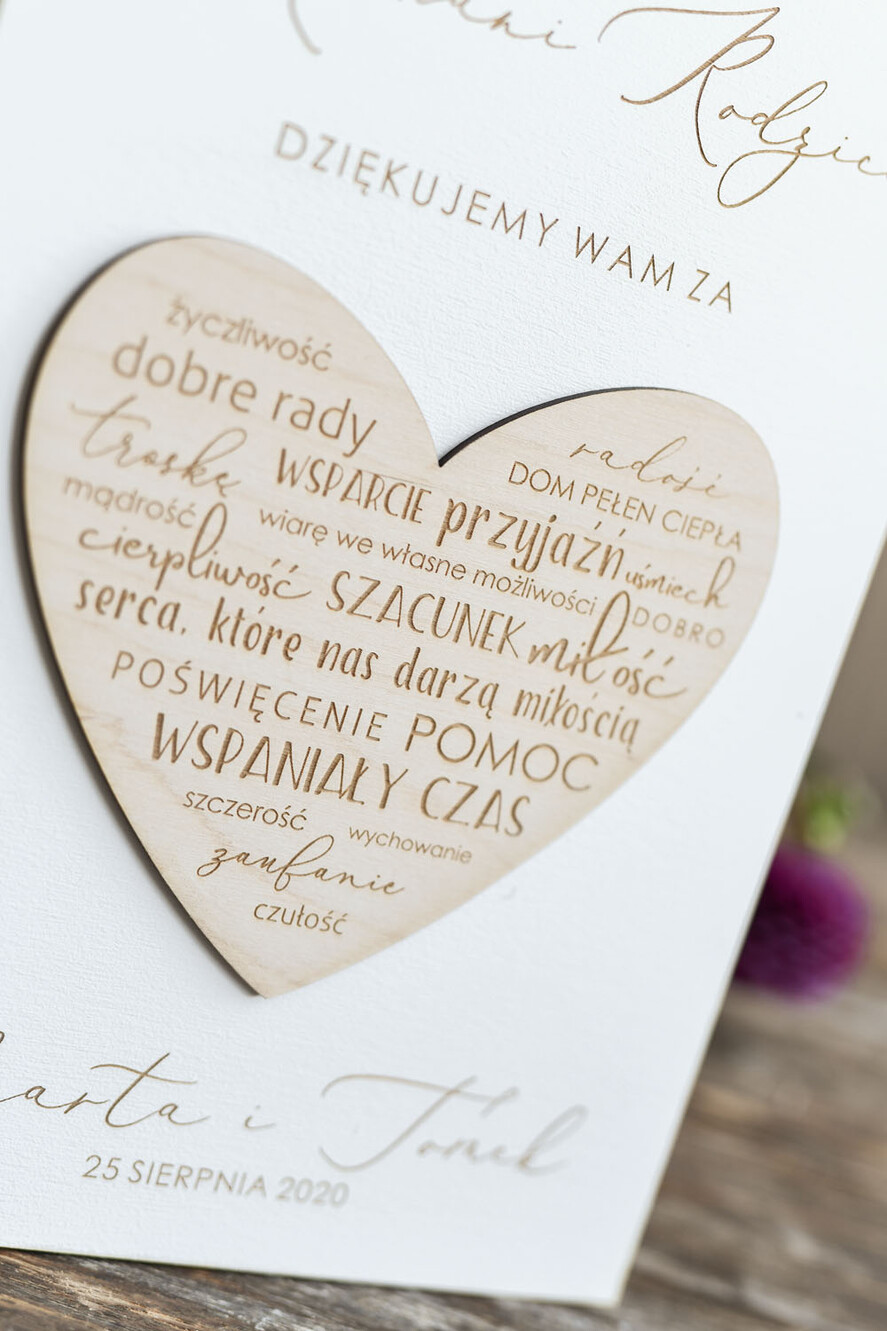 Rodzic
DZIĘKUJEMY WAM ZA
życzliwość
dobre rady
troskę WSPARCIE przyjaźń radość
DOM PEŁEN CIEPŁA
mądrość wiarę we własne możliwości uśmiech
cierpliwość SZACUNEK miłość DOBRO
serca, które nas darzą miłością
POŚWIĘCENIE POMOC
WSPANIAŁY CZAS
szczerość wychowanie
zaufanie
czułość
arta i Tomek
25 SIERPNIA 2020